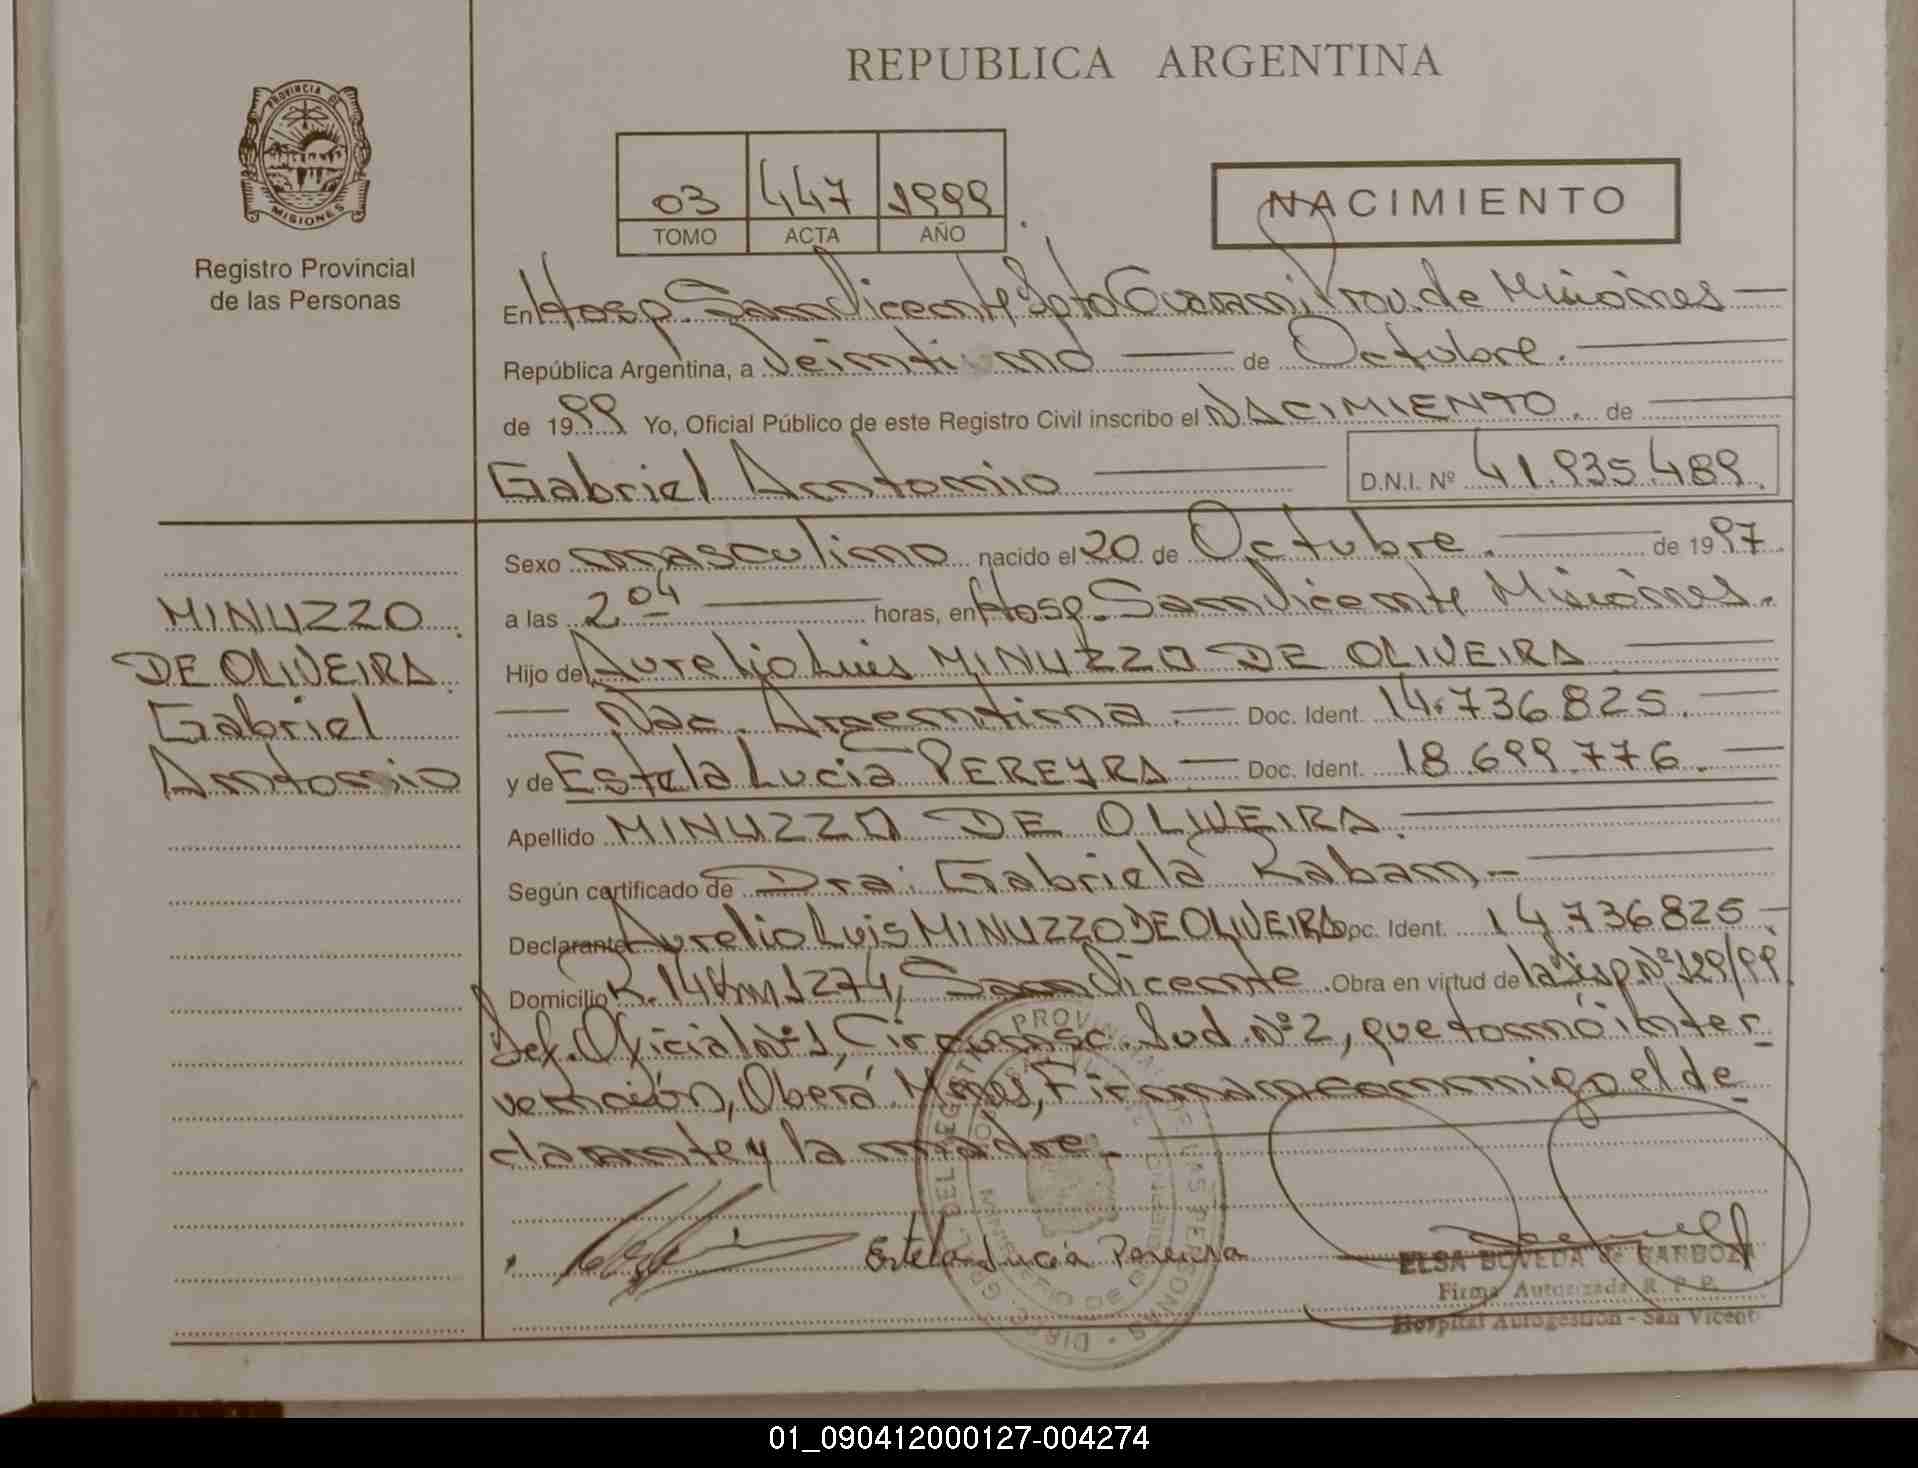 REPUBLICA ARGENTINA
PROVINCIA DE
MISIONES
Registro Provincial
de las Personas
03 447 1999
TOMO ACTA AÑO
NACIMIENTO
En Hosp. San Vicente Dpto Guarani Prov. de Misiones
República Argentina, a Veintiuno de Octubre.
de 1999 Yo, Oficial Público de este Registro Civil inscribo el NACIMIENTO. de
Gabriel Antonio D.N.I. Nº 41.935.489.
Sexo masculino nacido el 20 de Octubre. de 1997
a las 2 04 horas, en Hosp. San Vicente Misiones.
Hijo de Aurelio Luis MINUZZO DE OLIVEIRA
Nac. Argentina. Doc. Ident. 14.736825.
y de Estela Lucia PEREYRA Doc. Ident. 18.699.776.
Apellido MINUZZO DE OLIVEIRA.
Según certificado de Dra. Gabriela Raban.-
Declarante Aurelio Luis MINUZZO DE OLIVEIRA Doc. Ident. 14.736825
Domicilio R. 14 Km 1274, San Vicente. Obra en virtud de la Disp. Nº 129/99.
Def. Oficial Nº 1, Circunsc. Jud. Nº 2, que tomó inter
vención, Oberá Mnes, Firman conmigo el de
clarante y la madre.
MINUZZO
DE OLIVEIRA.
Gabriel
Antonio
Estela Lucia Pereira
ELSA BOVEDA de BARBOZA
Firma Autorizada R. P. P.
Hospital Autogestion - San Vicent
01_090412000127-004274